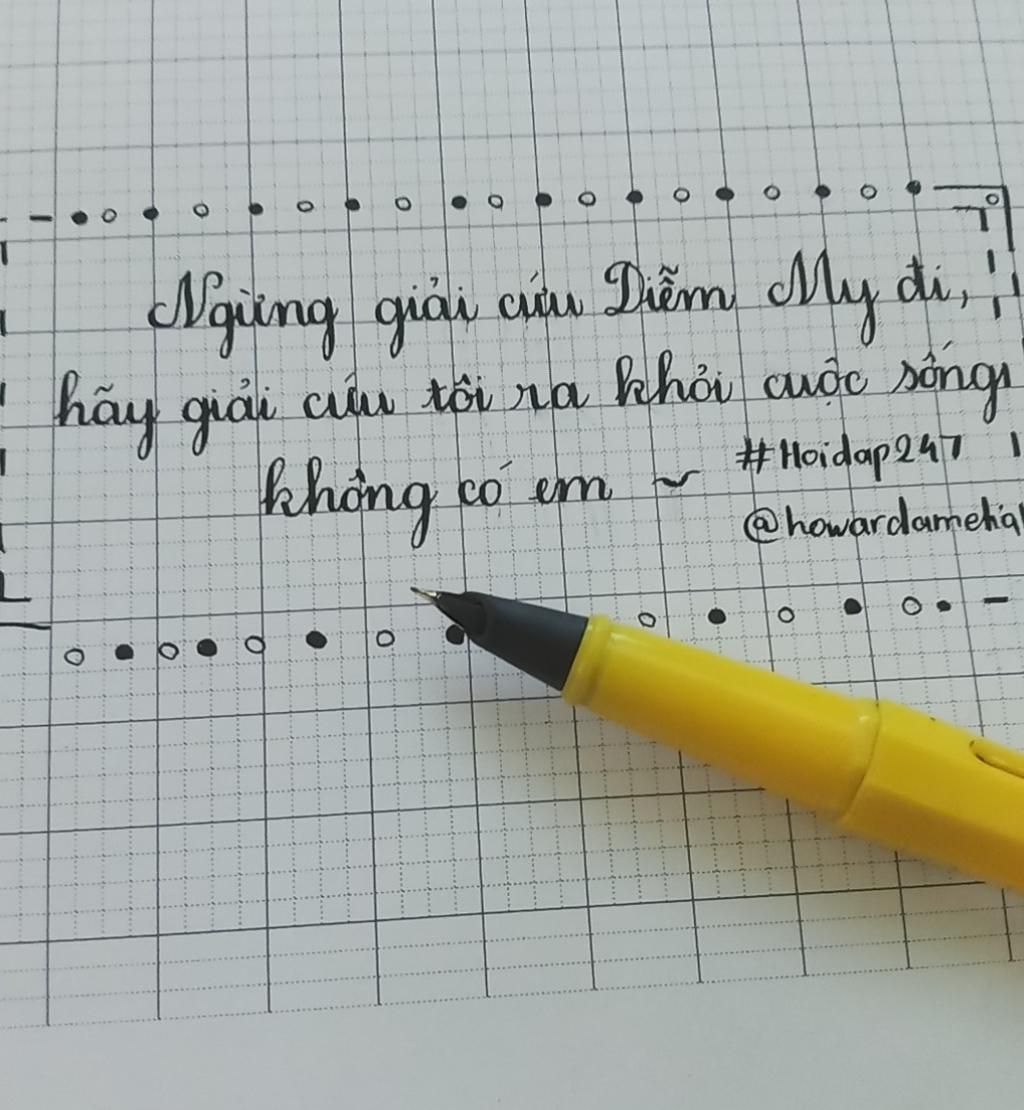 Ngừng giải cứu Diễm My đi,
hãy giải cứu tôi ra khỏi cuộc sống
không có em ~ #Hoidap247